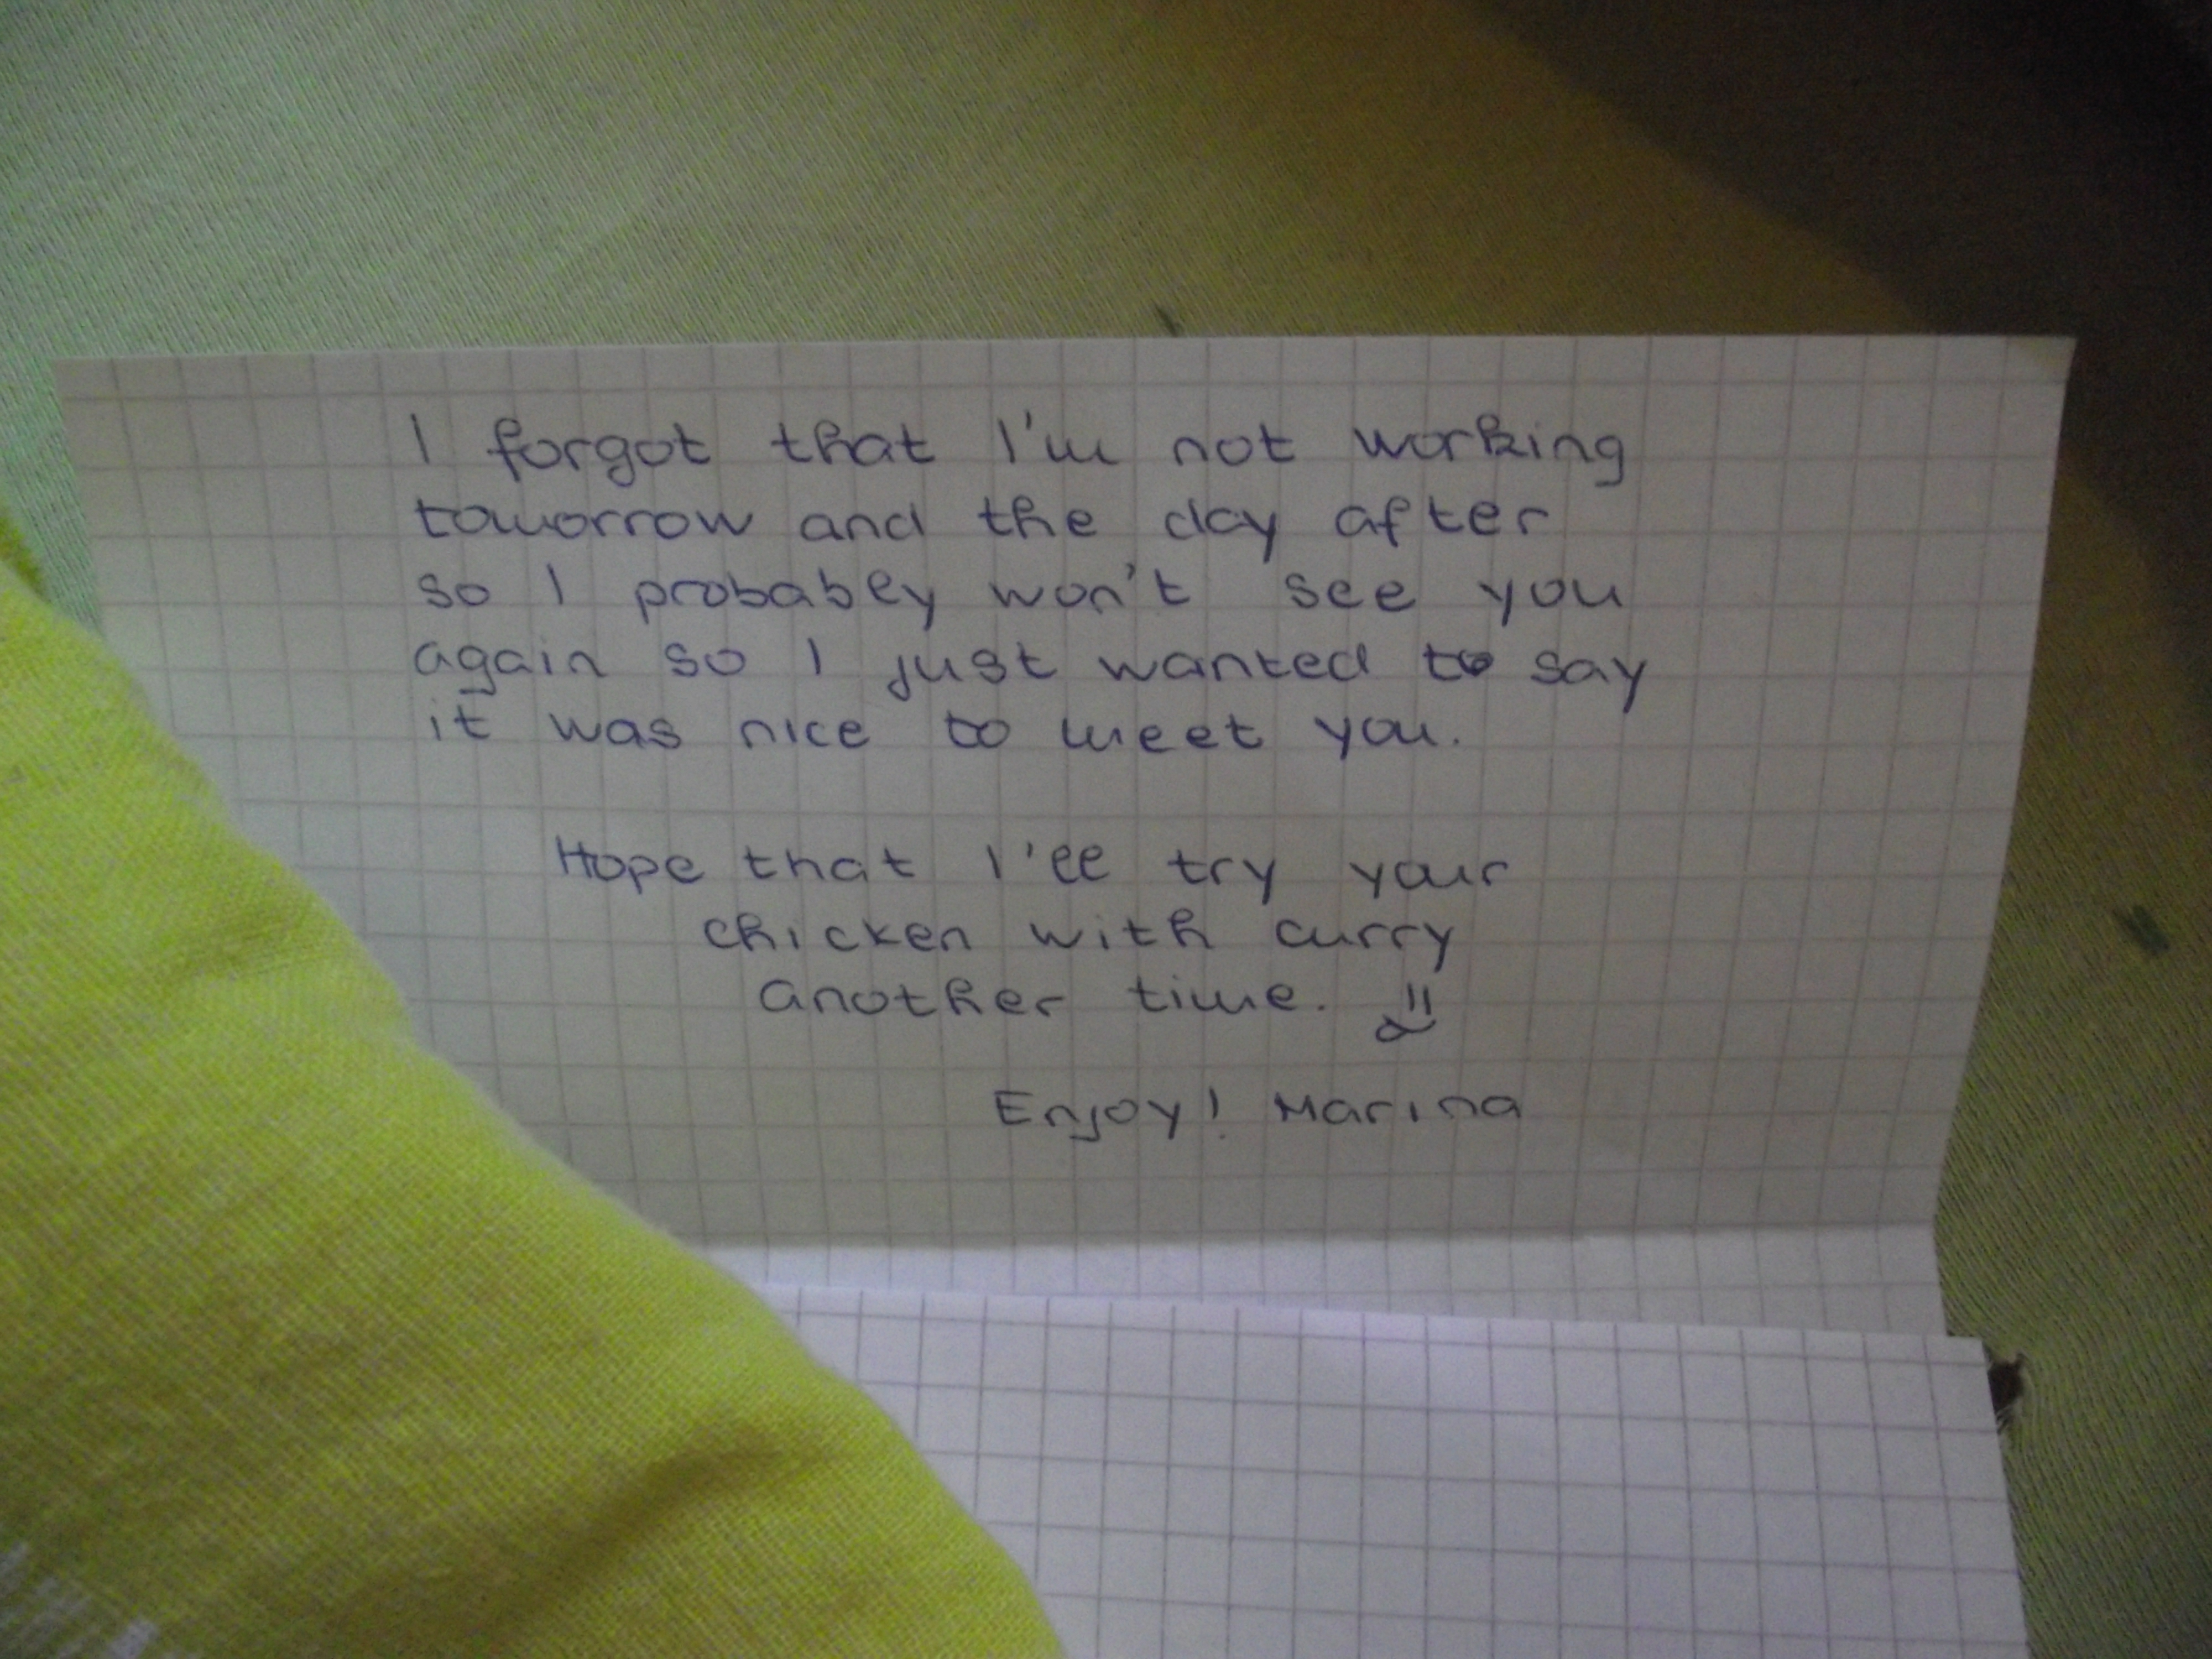 I forgot that I'm not working
tomorrow and the day after
so I probably won't see you
again so I just wanted to say
it was nice to meet you.
Hope that I'll try your
chicken with curry
another time.
Enjoy! Marina